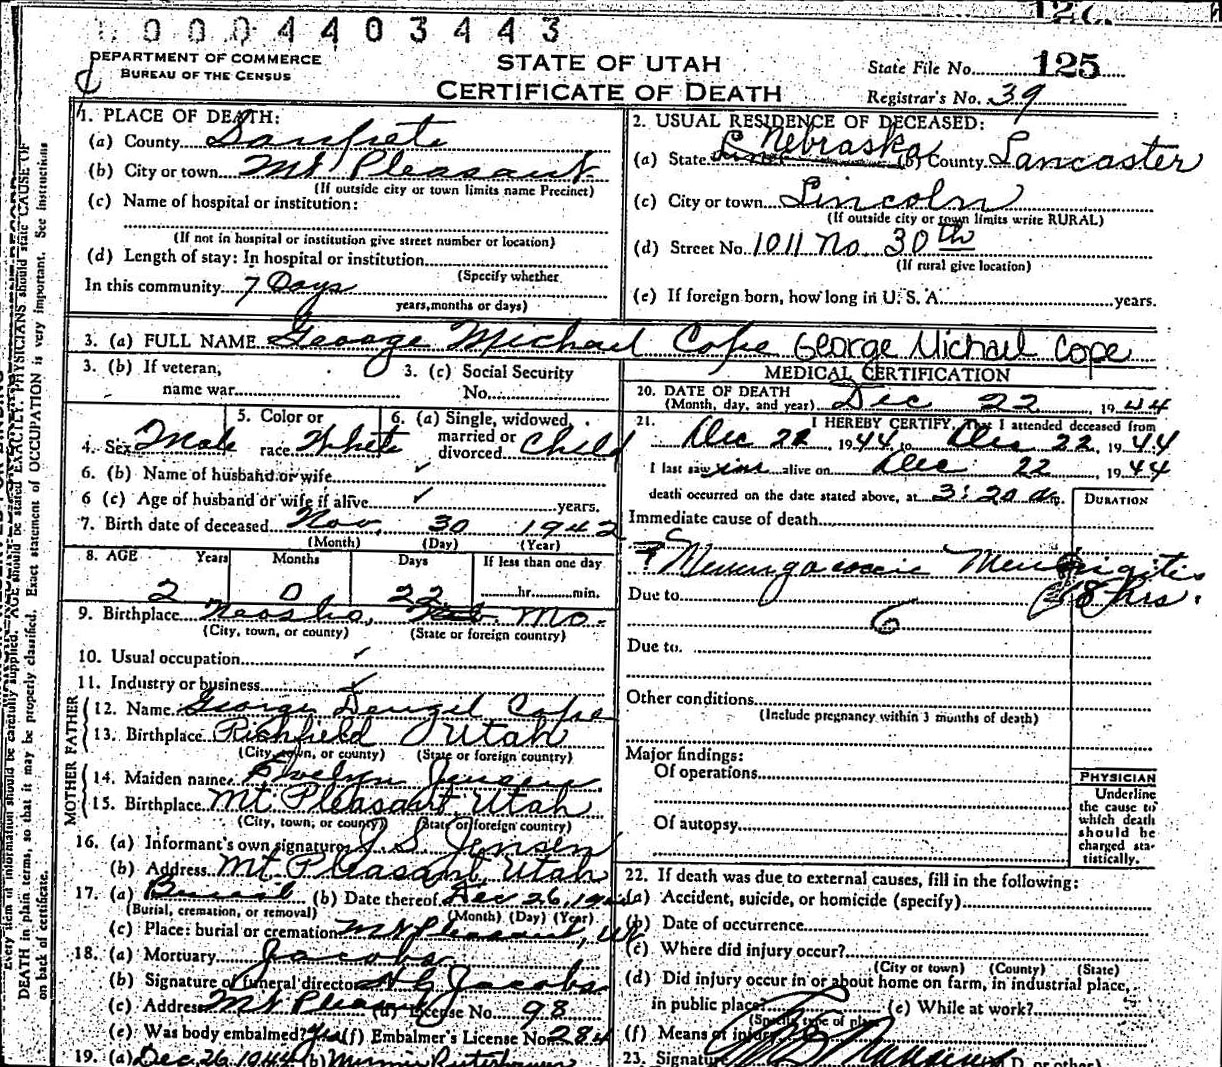 1 0 0 0 4 4 0 3 4 4 3
DEPARTMENT OF COMMERCE
BUREAU OF THE CENSUS
STATE OF UTAH
CERTIFICATE OF DEATH
State File No. 125
Registrar's No. 39
1. PLACE OF DEATH:
(a) County Sanpete
(b) City or town Mt Pleasant
(If outside city or town limits name Precinct)
(c) Name of hospital or institution:
(If not in hospital or institution give street number or location)
(d) Length of stay: In hospital or institution
(Specify whether
In this community 7 Days
years, months or days)
2. USUAL RESIDENCE OF DECEASED:
(a) State Nebraska (b) County Lancaster
(c) City or town Lincoln
(If outside city or town limits write RURAL)
(d) Street No. 1011 No. 30th
(If rural give location)
(e) If foreign born, how long in U. S. A. years.
3. (a) FULL NAME George Michael Cope George Michael Cope
3. (b) If veteran,
name war
3. (c) Social Security
No.
4. Sex Male
5. Color or
race White
6. (a) Single, widowed,
married or
divorced Child
6. (b) Name of husband or wife ✓
6 (c) Age of husband or wife if alive ✓ years.
7. Birth date of deceased Nov. 30 1942
(Month) (Day) (Year)
8. AGE Years Months Days If less than one day
2 0 22 hr. min.
9. Birthplace Neosho, Mo.
(City, town, or county) (State or foreign country)
10. Usual occupation ✓
11. Industry or business ✓
FATHER
12. Name George Denzil Cope
13. Birthplace Richfield Utah
(City, town, or county) (State or foreign country)
MOTHER
14. Maiden name Evelyn Jensen
15. Birthplace Mt Pleasant Utah
(City, town, or county) (State or foreign country)
16. (a) Informant's own signature J S Jensen
(b) Address Mt Pleasant, Utah
17. (a) Burial (b) Date thereof Dec 26, 1944
(Burial, cremation, or removal) (Month) (Day) (Year)
(c) Place: burial or cremation Mt Pleasant, Ut
18. (a) Mortuary Jacobs
(b) Signature of funeral director Jacobs
(c) Address Mt Pleasant (d) License No. 98
(e) Was body embalmed? Yes (f) Embalmer's License No. 284
19. (a) Dec 26, 1944 (b)
MEDICAL CERTIFICATION
20. DATE OF DEATH
(Month, day, and year) Dec 22, 1944
21. I HEREBY CERTIFY, That I attended deceased from
Dec 22, 1944 to Dec 22, 1944
I last saw him alive on Dec 22, 1944
death occurred on the date stated above, at 3:20 a.m.
DURATION
Immediate cause of death
? Meningococcic Meningitis
Due to 18 hrs.
6
Due to.
Other conditions
(Include pregnancy within 3 months of death)
Major findings:
Of operations
Of autopsy
PHYSICIAN
Underline
the cause to
which death
should be
charged sta-
tistically.
22. If death was due to external causes, fill in the following:
(a) Accident, suicide, or homicide (specify)
(b) Date of occurrence
(c) Where did injury occur?
(City or town) (County) (State)
(d) Did injury occur in or about home on farm, in industrial place,
in public place? (e) While at work?
(Specify type of place)
(f) Means of injury
23. Signature D. or other)
Every item of information should be carefully supplied. AGE should be stated EXACTLY. PHYSICIANS should state CAUSE OF
DEATH in plain terms, so that it may be properly classified. Exact statement of OCCUPATION is very important. See instructions
on back of certificate.